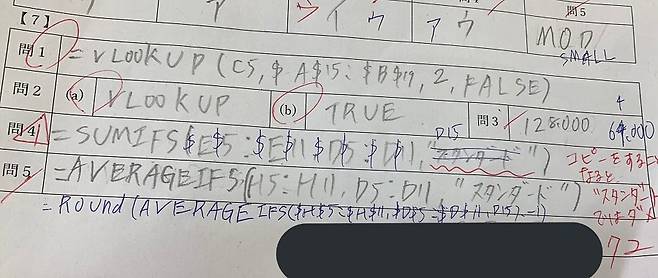 問5
ア イ ウ ア ウ MOD
【7】 SMALL
問1 =VLOOKUP(C5,$A$15:$B$19,2,FALSE)
問2 (a) VLOOKUP (b) TRUE 問3 128.000 64,000
問4 =SUMIFS($E$5:$E$11,$D$5:$D$11,"スタンダード") D15
コピーをすることに
なると
"スタンダード"
ではダメ
問5 =AVERAGEIFS(H5:H11,D5:D11,"スタンダード")
=ROUND(AVERAGEIFS($H$5:$H$11,$D$5:$D$11,D15),-1)
72